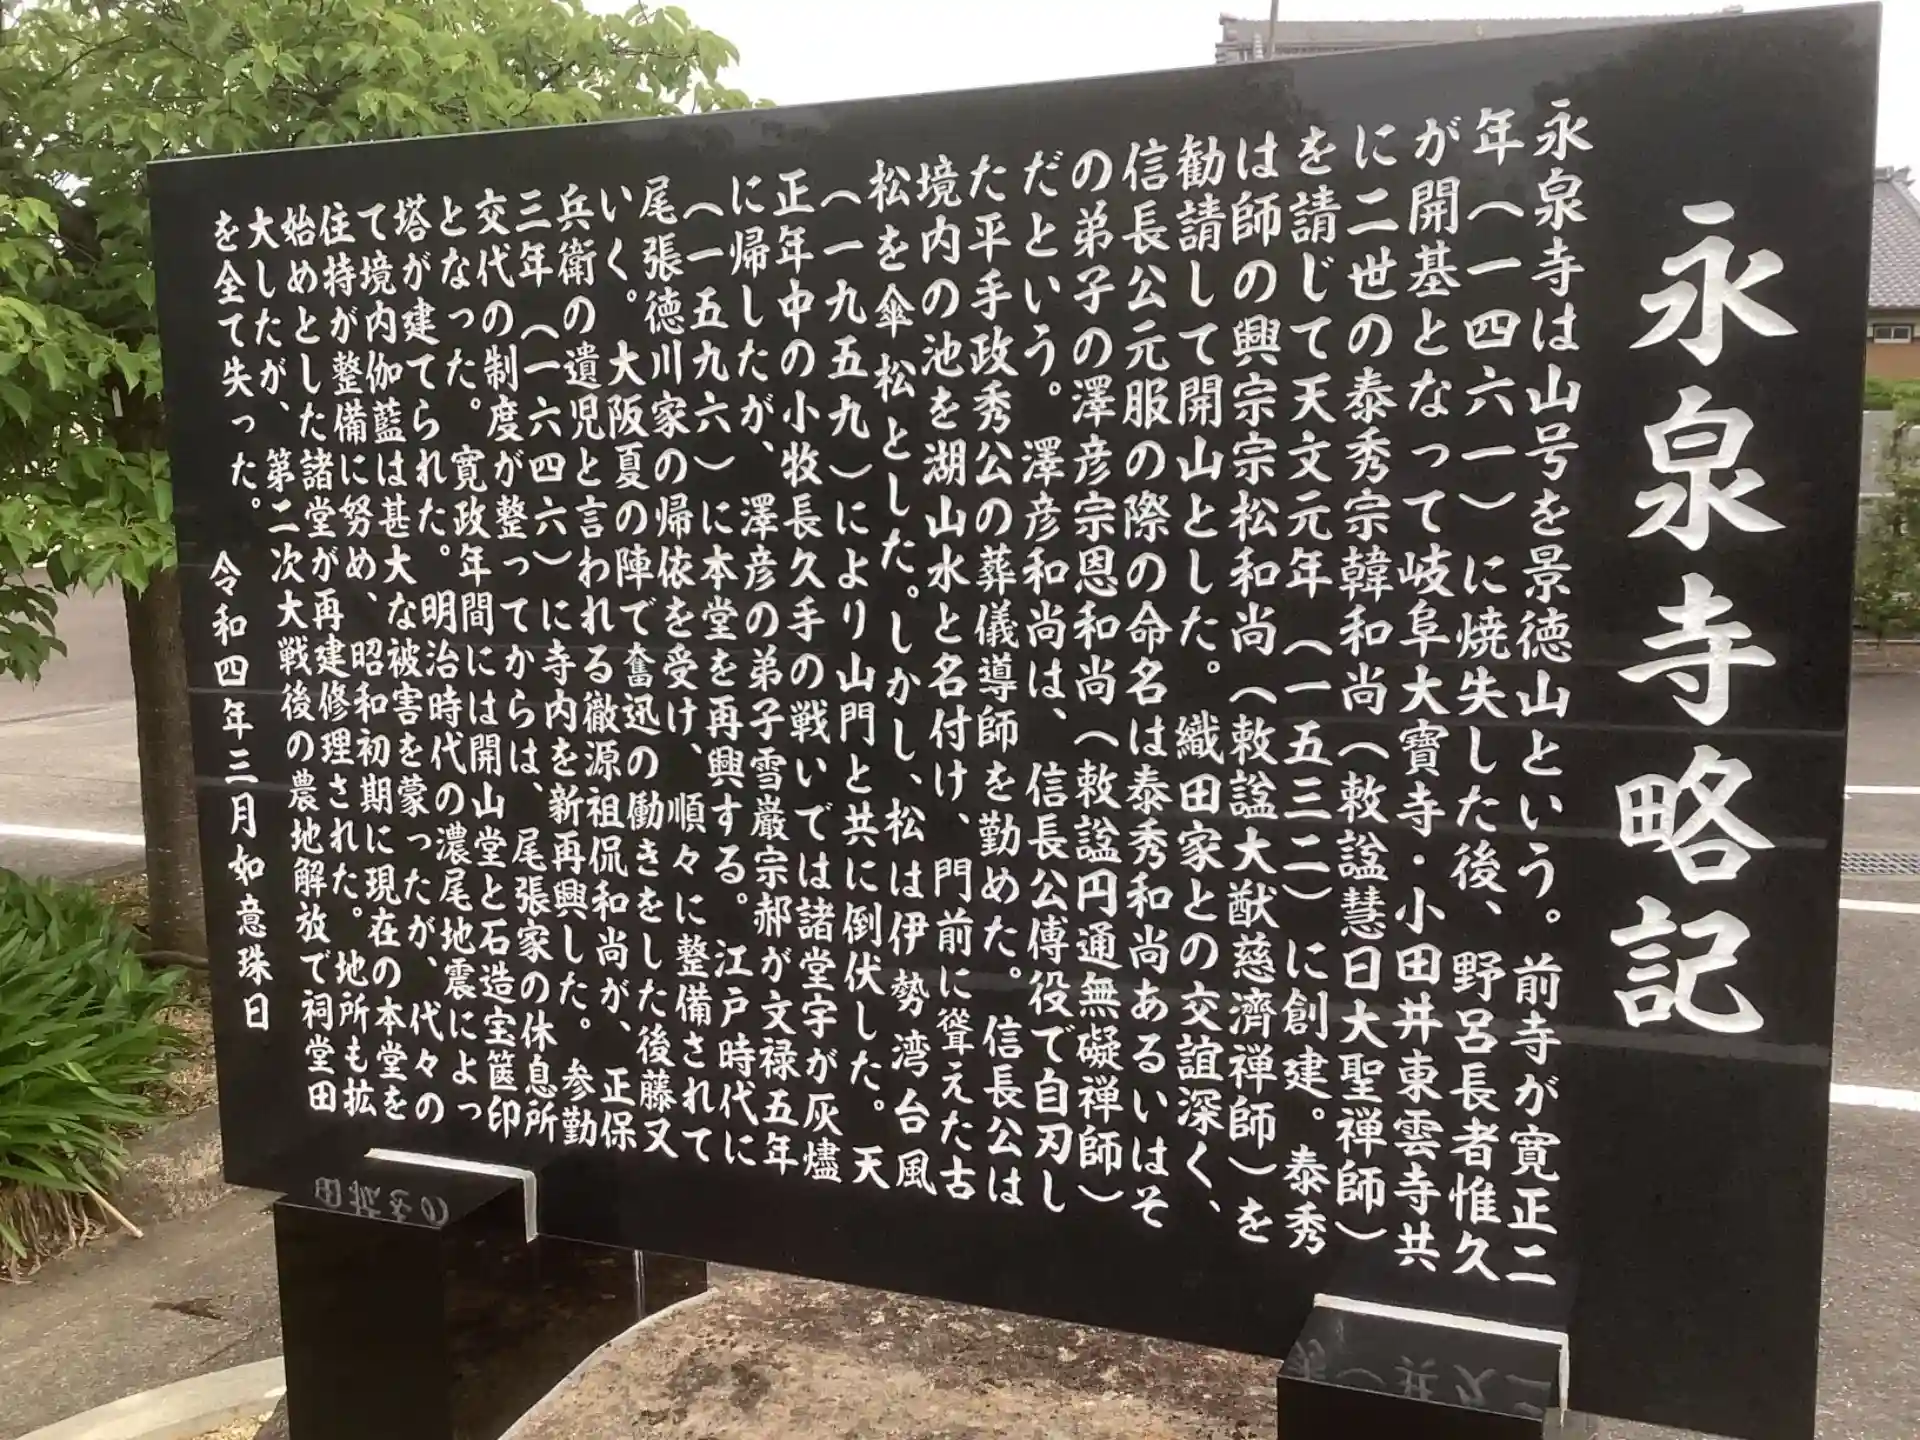 永泉寺略記
永泉寺は山号を景徳山という。前寺が寛正二
年（一四六一）に焼失した後、野呂長者惟久
が開基となって岐阜大寶寺・小田井東雲寺共
に二世の泰秀宗韓和尚（敕諡慧日大聖禅師）
を請じて天文元年（一五三二）に創建。泰秀
は師の興宗宗松和尚（敕諡大猷慈濟禅師）を
勧請して開山とした。織田家との交誼深く、
信長公元服の際の命名は泰秀和尚あるいはそ
の弟子の澤彦宗恩和尚（敕諡円通無礙禅師）
だという。澤彦和尚は、信長公傅役で自刃し
た平手政秀公の葬儀導師を勤めた。信長公は
境内の池を湖山水と名付け、門前に聳えた古
松を傘松とした。しかし、松は伊勢湾台風
（一九五九）により山門と共に倒伏した。天
正年中の小牧長久手の戦いでは諸堂宇が灰燼
に帰したが、澤彦の弟子雪巌宗郝が文禄五年
（一五九六）に本堂を再興する。江戸時代に
尾張徳川家の帰依を受け、順々に整備されて
いく。大阪夏の陣で奮迅の働きをした後藤又
兵衛の遺児と言われる徹源祖侃和尚が、正保
三年（一六四六）に寺内を新再興した。参勤
交代の制度が整ってからは、尾張家の休息所
となった。寛政年間には開山堂と石造宝篋印
塔が建てられた。明治時代の濃尾地震によっ
て境内伽藍は甚大な被害を蒙ったが、代々の
住持が整備に努め、昭和初期に現在の本堂を
始めとした諸堂が再建修理された。地所も拡
大したが、第二次大戦後の農地解放で祠堂田
を全て失った。　令和四年三月如意珠日